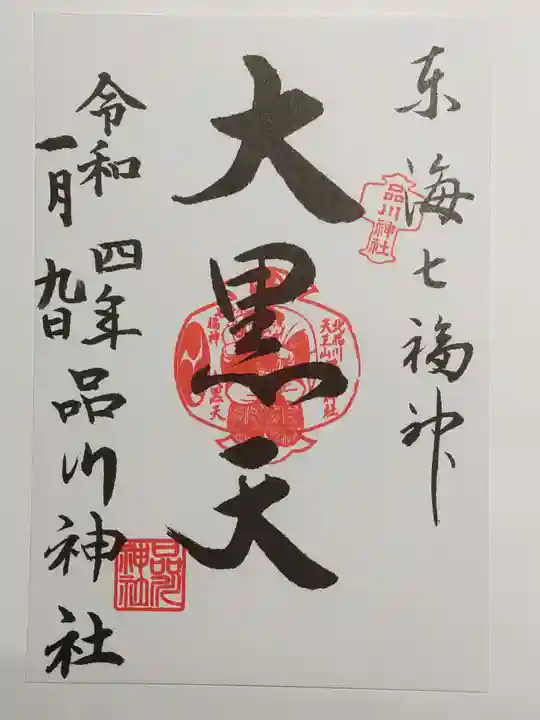 东海七福神
品川神社
大黒天
北品川
天王山
社
福神
黒天
令和四年
一月九日
品川神社
品川神社